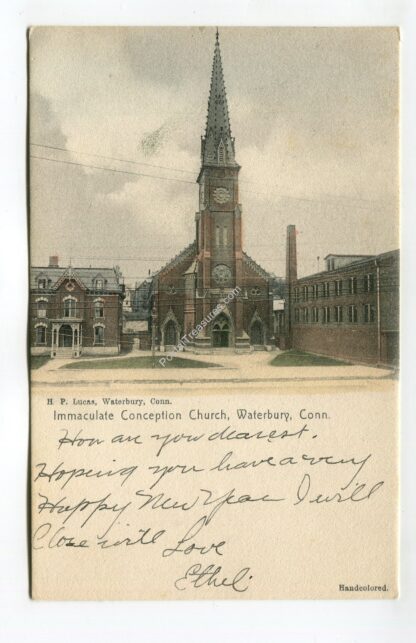 PostalTreasures.com
H P. Lucas, Waterbury, Conn.
Immaculate Conception Church, Waterbury, Conn.
How are you dearest.
Hoping you have a very
Happy New Year I will
Close with Love
Ethel.
Handcolored.